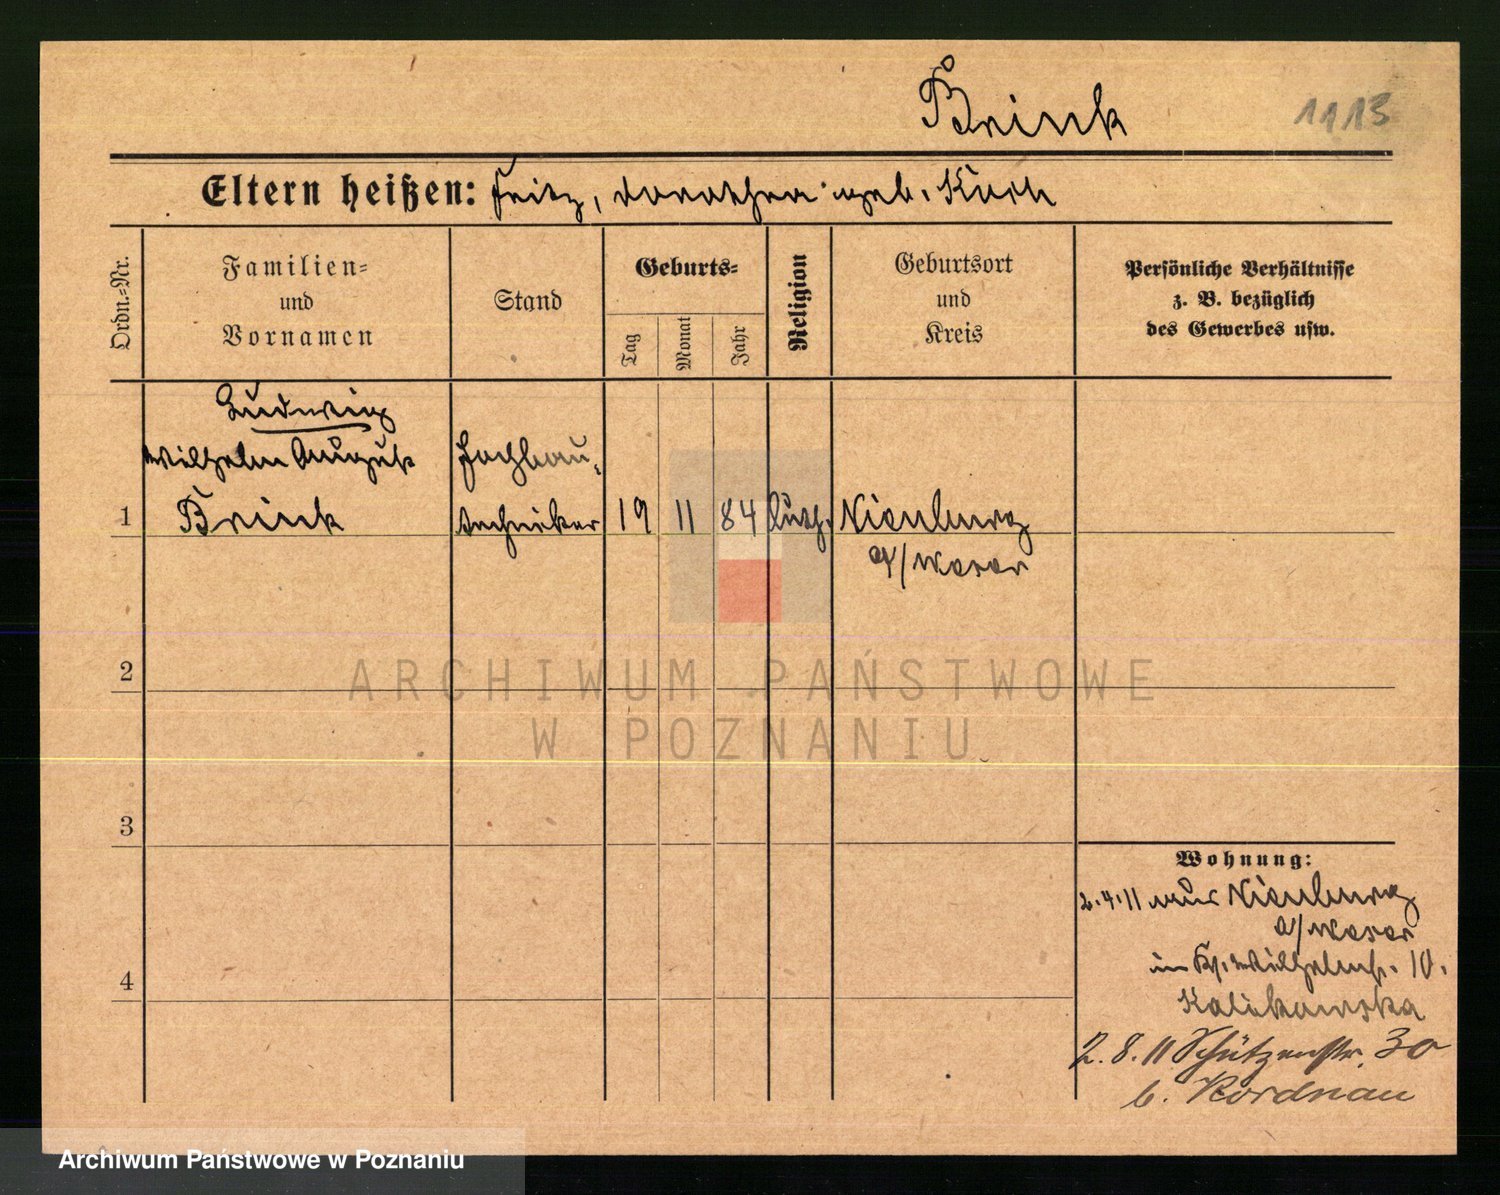 Brink
1113
Eltern heißen: Fritz, Dorothea geb. Koch
Ordn.-Nr.
Familien-
und
Vornamen
Stand
Geburts-
Tag
Monat
Jahr
Religion
Geburtsort
und
Kreis
Persönliche Verhältnisse
z. B. bezüglich
des Gewerbes usw.
Ludwig
Wilhelm August
Brink
1
techniker
19
11
84
luth.
Nienburg
a/Weser
2
3
4
Wohnung:
2.4.11 aus Nienburg
a/Weser
Wilhelmstr. 10.
2.8.11 Schützenstr. 30
b. Kordnau
ARCHIWUM PAŃSTWOWE
W POZNANIU
Archiwum Państwowe w Poznaniu